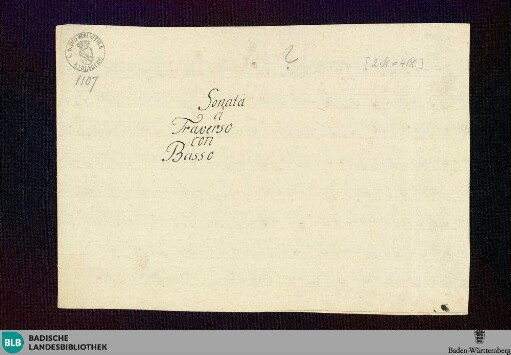 1107
?
[2 St = 4 Bl.]
Sonata
a
Traverso
con
Basso
BLB
BADISCHE
LANDESBIBLIOTHEK
Baden-Württemberg